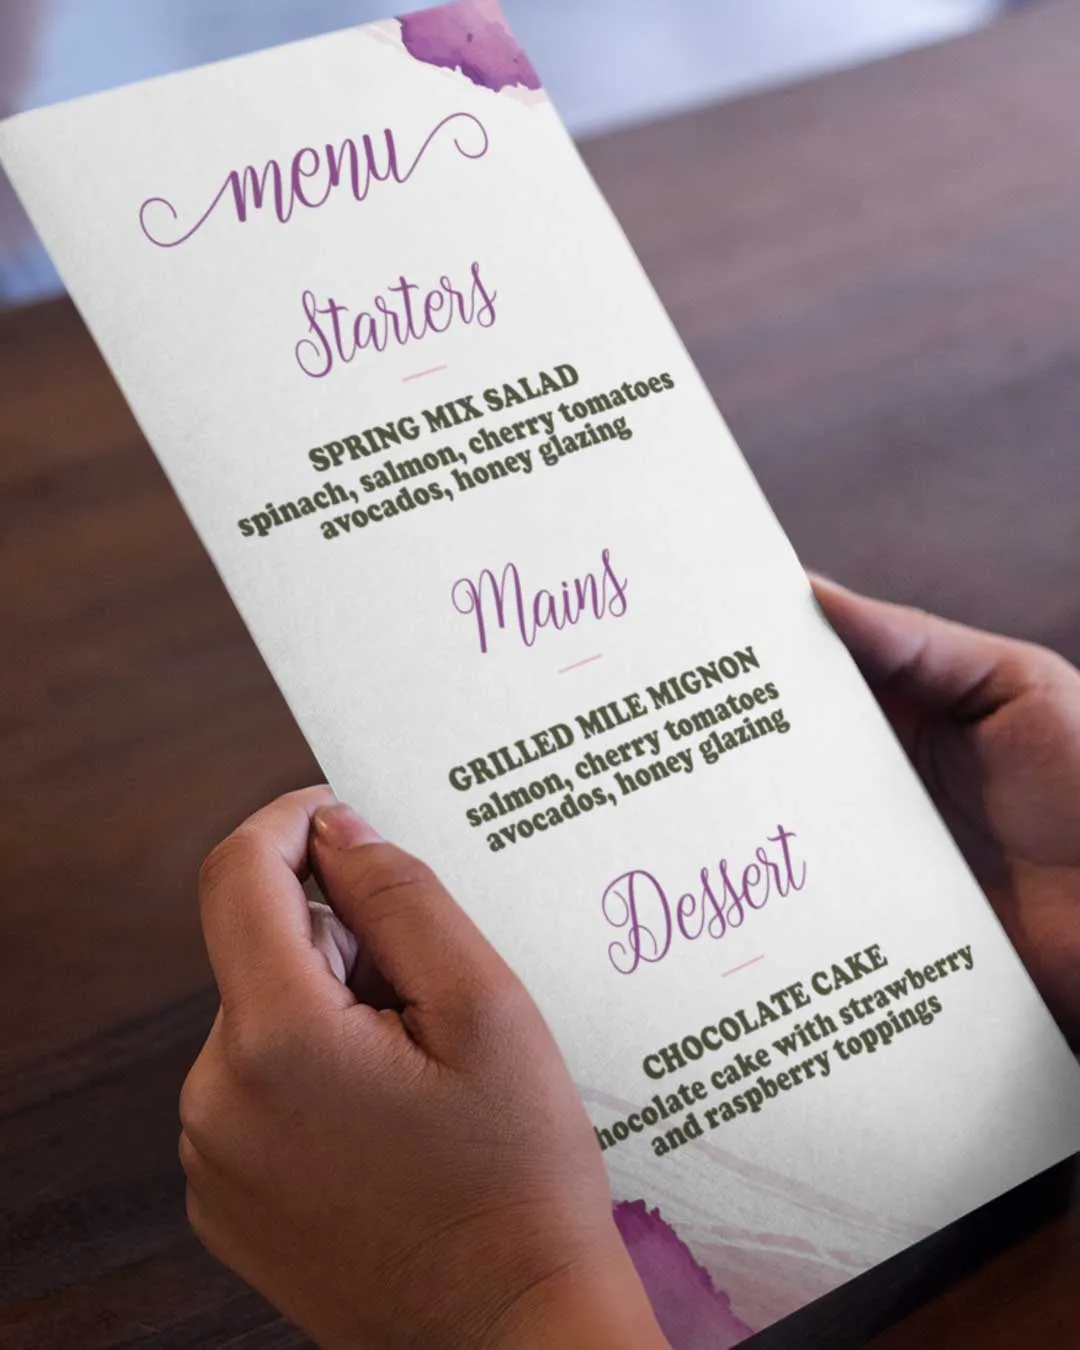 menu
Starters
SPRING MIX SALAD
spinach, salmon, cherry tomatoes
avocados, honey glazing
Mains
GRILLED MILE MIGNON
salmon, cherry tomatoes
avocados, honey glazing
Dessert
CHOCOLATE CAKE
hocolate cake with strawberry
and raspberry toppings